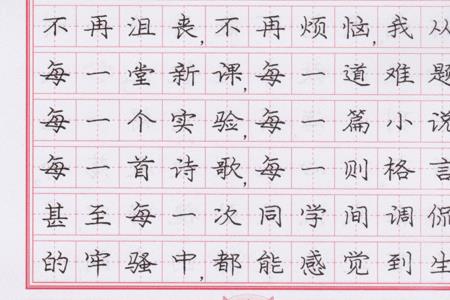 不再沮丧,不再烦恼,我从
每一堂新课,每一道难题
每一个实验,每一篇小说
每一首诗歌,每一则格言
甚至每一次同学间调侃
的牢骚中,都能感觉到生